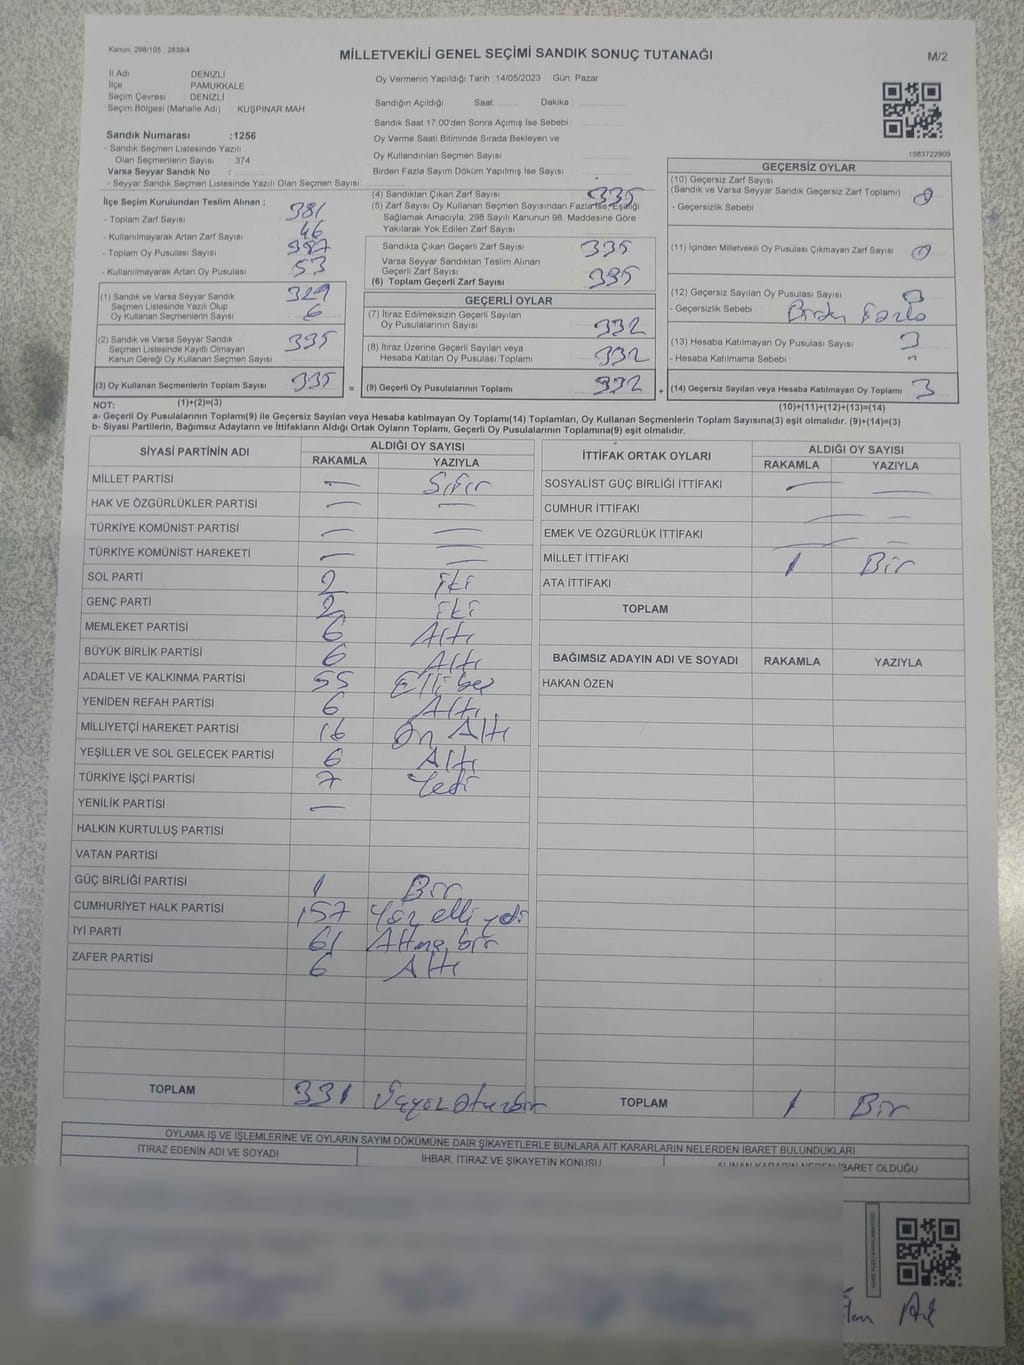 Kanun: 298/105 , 2839/4
MİLLETVEKİLİ GENEL SEÇİMİ SANDIK SONUÇ TUTANAĞI
M/2
İl Adı DENİZLİ
İlçe PAMUKKALE
Seçim Çevresi DENİZLİ
Seçim Bölgesi (Mahalle Adı) : KUŞPINAR MAH.
Sandık Numarası :1256
- Sandık Seçmen Listesinde Yazılı
Olan Seçmenlerin Sayısı : 374
Varsa Seyyar Sandık No :
- Seyyar Sandık Seçmen Listesinde Yazılı Olan Seçmen Sayısı:
Oy Vermenin Yapıldığı Tarih :14/05/2023 Gün: Pazar
Sandığın Açıldığı Saat: Dakika :
Sandık Saat 17:00'den Sonra Açımış İse Sebebi :
Oy Verme Saati Bitiminde Sırada Bekleyen ve
Oy Kullandırılan Seçmen Sayısı
Birden Fazla Sayım Döküm Yapılmış İse Sayısı :
1083722909
İlçe Seçim Kurulundan Teslim Alınan :
- Toplam Zarf Sayısı 381
- Kullanılmayarak Artan Zarf Sayısı 46
- Toplam Oy Pusulası 387
- Kullanılmayarak Artan Oy Pusulası 53
(1) Sandık ve Varsa Seyyar Sandık
Seçmen Listesinde Yazılı Olup
Oy Kullanan Seçmenlerin Sayısı 329
6
(2) Sandık ve Varsa Seyyar Sandık
Seçmen Listesinde Kayıtlı Olmayan
Kanun Gereği Oy Kullanan Seçmen Sayısı 335
(3) Oy Kullanan Seçmenlerin Toplam Sayısı 335 =
(4) Sandıktan Çıkan Zarf Sayısı 335
(5) Zarf Sayısı Oy Kullanan Seçmen Sayısından Fazla ise, Eşitliği
Sağlamak Amacıyla; 298 Sayılı Kanunun 98. Maddesine Göre
Yakılarak Yok Edilen Zarf Sayısı
Sandıkta Çıkan Geçerli Zarf Sayısı 335
Varsa Seyyar Sandıktan Teslim Alınan
Geçerli Zarf Sayısı
(6) Toplam Geçerli Zarf Sayısı 335
GEÇERLİ OYLAR
(7) İtiraz Edilmeksizin Geçerli Sayılan
Oy Pusulalarının Sayısı 332
(8) İtiraz Üzerine Geçerli Sayılan veya
Hesaba Katılan Oy Pusulası Toplamı 332
(9) Geçerli Oy Pusulalarının Toplamı 332 +
GEÇERSİZ OYLAR
(10) Geçersiz Zarf Sayısı
(Sandık ve Varsa Seyyar Sandık Geçersiz Zarf Toplamı) 0
- Geçersizlik Sebebi
(11) İçinden Milletvekili Oy Pusulası Çıkmayan Zarf Sayısı 0
(12) Geçersiz Sayılan Oy Pusulası Sayısı 3
- Geçersizlik Sebebi Birden Fazla
(13) Hesaba Katılmayan Oy Pusulası Sayısı 3
- Hesaba Katılmama Sebebi :
(14) Geçersiz Sayılan veya Hesaba Katılmayan Oy Toplamı 3
NOT: (1)+(2)=(3)
(10)+(11)+(12)+(13)=(14)
a- Geçerli Oy Pusulalarının Toplamı(9) ile Geçersiz Sayılan veya Hesaba katılmayan Oy Toplamı(14) Toplamları, Oy Kullanan Seçmenlerin Toplam Sayısına(3) eşit olmalıdır. (9)+(14)=(3)
b- Siyasi Partilerin, Bağımsız Adayların ve İttifakların Aldığı Ortak Oyların Toplamı, Geçerli Oy Pusulalarının Toplamına(9) eşit olmalıdır.
SİYASİ PARTİNİN ADI ALDIĞI OY SAYISI
RAKAMLA YAZIYLA
MİLLET PARTİSİ — Sıfır
HAK VE ÖZGÜRLÜKLER PARTİSİ — —
TÜRKİYE KOMÜNİST PARTİSİ — —
TÜRKİYE KOMÜNİST HAREKETİ — —
SOL PARTİ 2 iki
GENÇ PARTİ 2 iki
MEMLEKET PARTİSİ 6 Altı
BÜYÜK BİRLİK PARTİSİ 6 Altı
ADALET VE KALKINMA PARTİSİ 55 Elli beş
YENİDEN REFAH PARTİSİ 6 Altı
MİLLİYETÇİ HAREKET PARTİSİ 16 On Altı
YEŞİLLER VE SOL GELECEK PARTİSİ 6 Altı
TÜRKİYE İŞÇİ PARTİSİ 7 Yedi
YENİLİK PARTİSİ —
HALKIN KURTULUŞ PARTİSİ
VATAN PARTİSİ
GÜÇ BİRLİĞİ PARTİSİ 1 Bir
CUMHURİYET HALK PARTİSİ 157 Yüz elli yedi
İYİ PARTİ 61 Altmış bir
ZAFER PARTİSİ 6 Altı
TOPLAM 331 Üçyüz Otuzbir
İTTİFAK ORTAK OYLARI ALDIĞI OY SAYISI
RAKAMLA YAZIYLA
SOSYALİST GÜÇ BİRLİĞİ İTTİFAKI — —
CUMHUR İTTİFAKI — —
EMEK VE ÖZGÜRLÜK İTTİFAKI — —
MİLLET İTTİFAKI 1 Bir
ATA İTTİFAKI
TOPLAM
BAĞIMSIZ ADAYIN ADI VE SOYADI RAKAMLA YAZIYLA
HAKAN ÖZEN
TOPLAM 1 Bir
OYLAMA İŞ VE İŞLEMLERİNE VE OYLARIN SAYIM DÖKÜMÜNE DAİR ŞİKAYETLERLE BUNLARA AİT KARARLARIN NELERDEN İBARET BULUNDUKLARI
İTİRAZ EDENİN ADI VE SOYADI
İHBAR, İTİRAZ VE ŞİKAYETİN KONUSU
ALINAN KARARIN NEDEN İBARET OLDUĞU